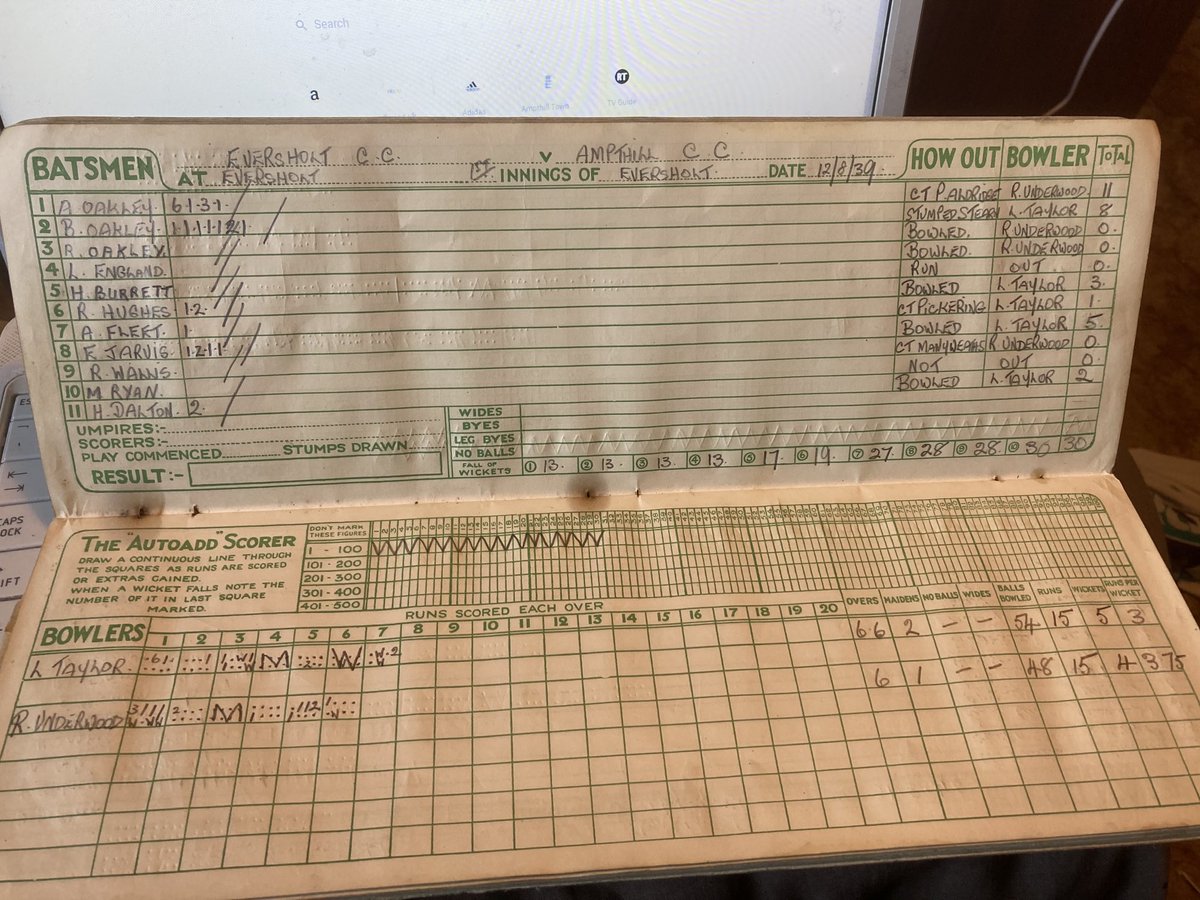 Search
a
Adidas
Ampthill Town
RT
TV Guide
BATSMEN EVERSHOLT C.C. V AMPTHILL C C HOW OUT BOWLER TOTAL
AT EVERSHOLT 1ST INNINGS OF EVERSHOLT. DATE 12/8/39
1 A OAKLEY. 6·1·3·1· CT P. ALDRIDGE R. UNDERWOOD. 11
2 B. OAKLEY. 1·1·1·1·1·2·1 STUMPED STEARN L. TAYLOR 8
3 R. OAKLEY. BOWLED. R. UNDERWOOD 0.
4 L. ENGLAND. BOWLED. R. UNDERWOOD 0.
5 H. BURRETT RUN OUT. 0.
6 R. HUGHES 1·2· BOWLED L TAYLOR 3.
7 A. FLEET. 1· CT PICKERING L. TAYLOR 1.
8 F. JARVIS. 1·2·1·1 BOWLED L. TAYLOR 5.
9 R. WALLIS. CT MANYWEATHS R. UNDERWOOD 0.
10 M RYAN. NOT OUT 0.
11 H. DALTON. 2. BOWLED L. TAYLOR 2
UMPIRES:- WIDES
SCORERS:- BYES
PLAY COMMENCED STUMPS DRAWN LEG BYES
NO BALLS
RESULT:- FALL OF WICKETS 1 13. 2 13. 3 13. 4 13. 5 17. 6 19. 7 27. 8 28 9 28. 10 30 30
THE "AUTOADD" SCORER
DRAW A CONTINUOUS LINE THROUGH
THE SQUARES AS RUNS ARE SCORED
OR EXTRAS GAINED.
WHEN A WICKET FALLS NOTE THE
NUMBER OF IT IN LAST SQUARE
MARKED.
DON'T MARK
THESE FIGURES
1 - 100
101 - 200
201 - 300
301 - 400
401 - 500
RUNS SCORED EACH OVER
BOWLERS 1 2 3 4 5 6 7 8 9 10 11 12 13 14 15 16 17 18 19 20 OVERS MAIDENS NO BALLS WIDES BALLS BOWLED RUNS WICKETS RUNS PER WICKET
L TAYLOR. M W 6·6 2 - - 54 15 5 3
R. UNDERWOOD M 6 1 - - 48 15. 4 3·75